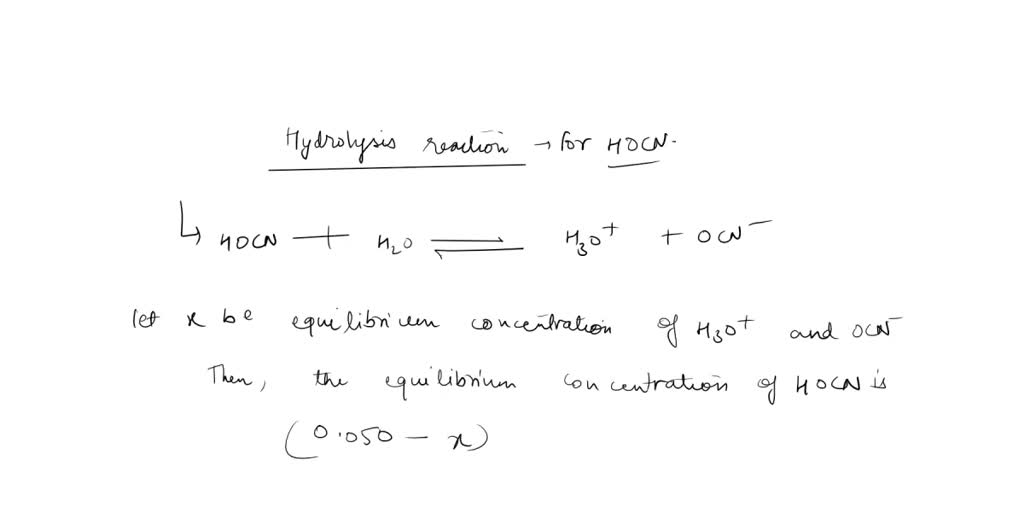 Hydrolysis reaction → for HOCN.
↳ HOCN + H₂O ⇌ H₃O⁺ + OCN⁻
let x be equilibrium concentration of H₃O⁺ and OCN⁻
Then, the equilibrium concentration of HOCN is
(0.050 – x)